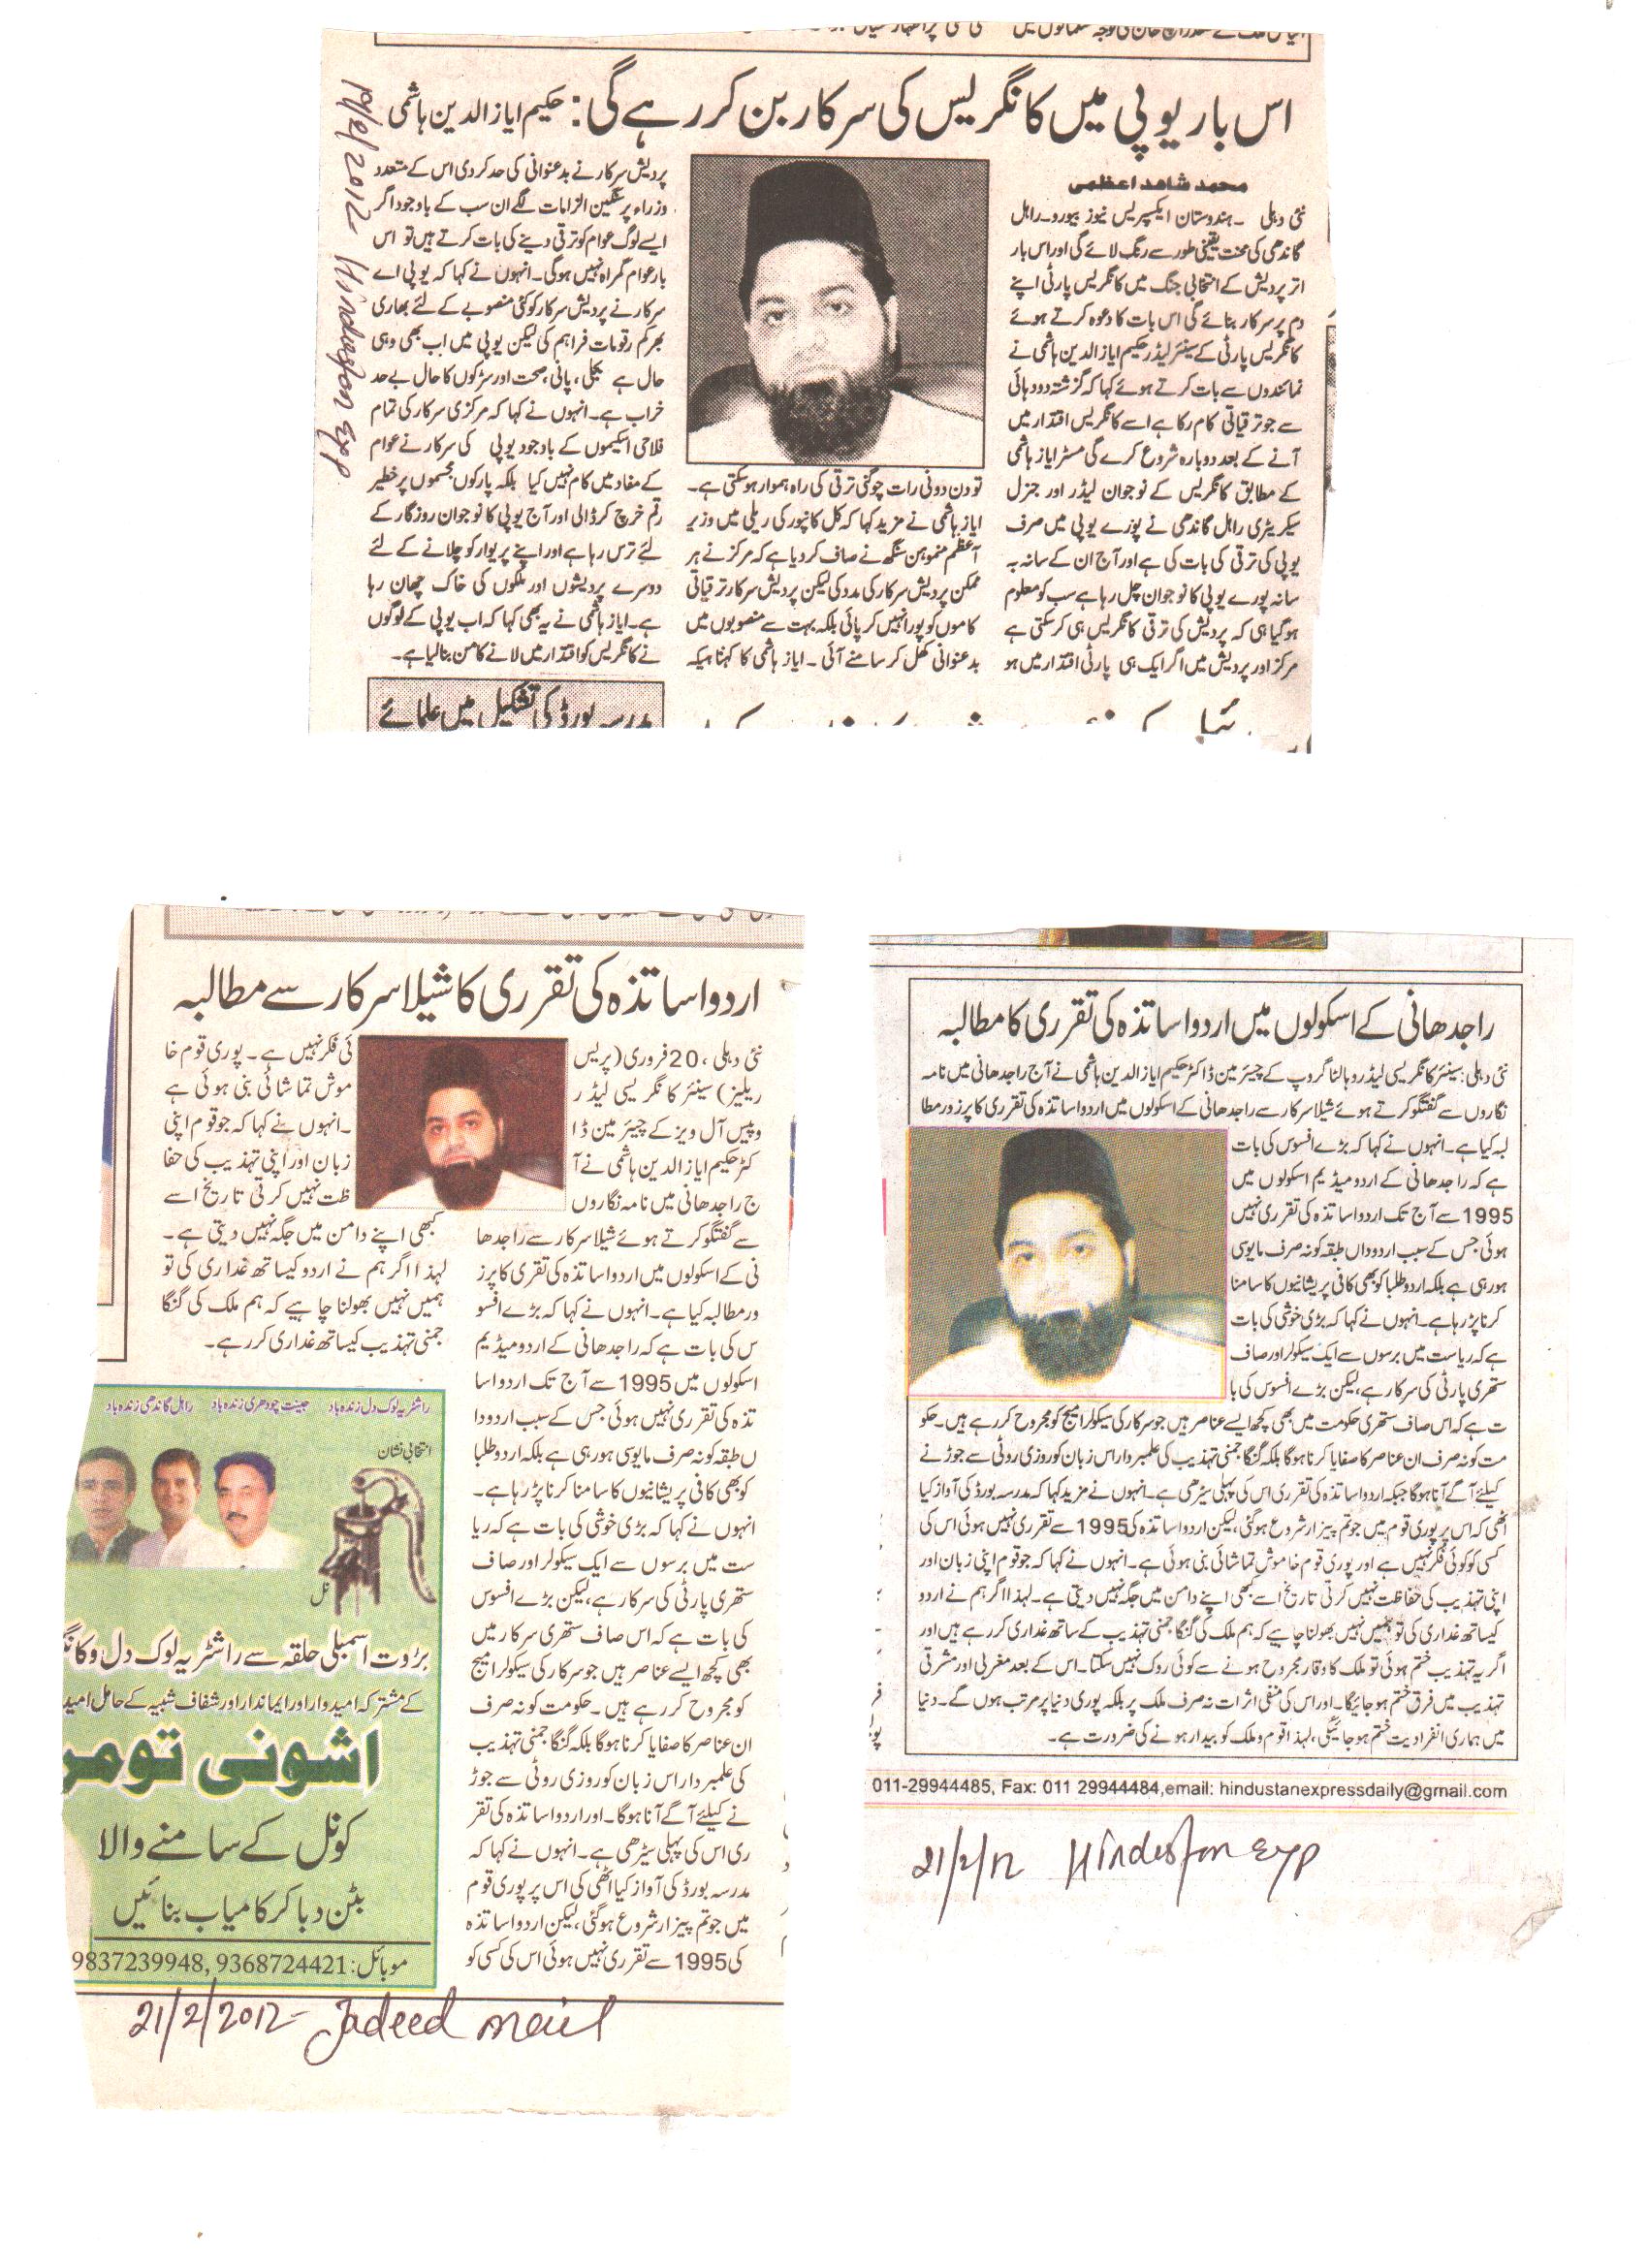 اس بار یوپی میں کانگریس کی سرکار بن کر رہے گی: حکیم ایاز الدین ہاشمی
محمد شاہد اعظمی
نئی دہلی ۔ ہندوستان ایکسپریس نیوز بیورو۔ راہل
گاندھی کی محنت یقینی طور سے رنگ لائے گی اور اس بار
اتر پردیش کے انتخابی جنگ میں کانگریس پارٹی اپنے
دم پر سرکار بنائے گی اس بات کا دعوہ کرتے ہوئے
کانگریس پارٹی کے سینئر لیڈر حکیم ایاز الدین ہاشمی نے
نمائندوں سے بات کرتے ہوئے کہا کہ گزشتہ دو دہائی
سے جو ترقیاتی کام رکا ہے اسے کانگریس اقتدار میں
آنے کے بعد دوبارہ شروع کرے گی مسٹر ایاز ہاشمی
کے مطابق کانگریس کے نوجوان لیڈر اور جنرل
سیکریٹری راہل گاندھی نے پورے یوپی میں صرف
یوپی کی ترقی کی بات کی ہے اور آج ان کے سانہ بہ
سانہ پورے یوپی کا نوجوان چل رہا ہے سب کو معلوم
ہوگیا ہی کہ پردیش کی ترقی کانگریس ہی کرسکتی ہے
مرکز اور پردیش میں اگر ایک ہی پارٹی اقتدار میں ہو
تو دن دونی رات چوگنی ترقی کی راہ ہموار ہوسکتی ہے۔
ایاز ہاشمی نے مزید کہا کہ کل کانپور کی ریلی میں وزیر
اعظم منموہن سنگھ نے صاف کردیا ہے کہ مرکز نے ہر
ممکن پردیش سرکار کی مدد کی لیکن پردیش سرکار ترقیاتی
کاموں کو پورا نہیں کر پائی بلکہ بہت سے منصوبوں میں
بدعنوانی کھل کر سامنے آئی ۔ ایاز ہاشمی کا کہنا ہیکہ
پردیش سرکار نے بدعنوانی کی حد کردی اس کے متعدد
وزراء پر سنگین الزامات لگے ان سب کے باوجود اگر
ایسے لوگ عوام کو ترقی دینے کی بات کرتے ہیں تو اس
بار عوام گمراہ نہیں ہوگی۔ انہوں نے کہا کہ یو پی اے
سرکار نے پردیش سرکار کو کئی منصوبے کے لئے بھاری
بھرکم رقومات فراہم کی لیکن یوپی میں اب بھی وہی
حال ہے بجلی، پانی، صحت اور سڑکوں کا حال بے حد
خراب ہے۔ انہوں نے کہا کہ مرکزی سرکار کی تمام
فلاحی اسکیموں کے باوجود یوپی کی سرکار نے عوام
کے مفاد میں کام نہیں کیا بلکہ پارکوں مجسموں پر خطیر
رقم خرچ کرڈالی اور آج یوپی کا نوجوان روزگار کے
لئے ترس رہا ہے اور اپنے پریوار کو چلانے کے لئے
دوسرے پردیشوں اور ملکوں کی خاک چھان رہا
ہے۔ ایاز ہاشمی نے یہ بھی کہا کہ اب یوپی کے لوگوں
نے کانگریس کو اقتدار میں لانے کا من بنالیا ہے۔
مدرسہ بورڈ کی تشکیل میں علمائے
2012 Hindustan Exp
اردو اساتذہ کی تقرری کا شیلا سرکار سے مطالبہ
نئی دہلی، 20 فروری (پریس
ریلیز) سینئر کانگریسی لیڈر
و پیس آل ویز کے چیئرمین ڈا
کٹر حکیم ایاز الدین ہاشمی نے آ
ج راجدھانی میں نامہ نگاروں
سے گفتگو کرتے ہوئے شیلا سرکار سے راجدھا
نی کے اسکولوں میں اردو اساتذہ کی تقرری کا پرز
ور مطالبہ کیا ہے۔ انہوں نے کہا کہ بڑے افسو
س کی بات ہے کہ راجدھانی کے اردو میڈیم
اسکولوں میں 1995 سے آج تک اردو اسا
تذہ کی تقرری نہیں ہوئی جس کے سبب اردو دا
ں طبقہ کو نہ صرف مایوسی ہو رہی ہے بلکہ اردو طلبا
کو بھی کافی پریشانیوں کا سامنا کرنا پڑ رہا ہے۔
انہوں نے کہا کہ بڑی خوشی کی بات ہے کہ ریا
ست میں برسوں سے ایک سیکولر اور صاف
ستھری پارٹی کی سرکار ہے، لیکن بڑے افسوس
کی بات ہے کہ اس صاف ستھری سرکار میں
بھی کچھ ایسے عناصر ہیں جو سرکار کی سیکولر امیج
کو مجروح کر رہے ہیں۔ حکومت کو نہ صرف
ان عناصر کا صفایا کرنا ہوگا بلکہ گنگا جمنی تہذیب
کی علمبردار اس زبان کو روزی روٹی سے جوڑ
نے کیلئے آگے آنا ہوگا۔ اور اردو اساتذہ کی تقر
ری اس کی پہلی سیڑھی ہے۔ انہوں نے کہا کہ
مدرسہ بورڈ کی آواز کیا اٹھی کی اس پر پوری قوم
میں جوتم پیزار شروع ہوگئی، لیکن اردو اساتذہ
کی 1995 سے تقرری نہیں ہوئی اس کی کسی کو
ئی فکر نہیں ہے۔ پوری قوم خا
موش تماشائی بنی ہوئی ہے
۔ انہوں نے کہا کہ جو قوم اپنی
زبان اور اپنی تہذیب کی حفا
ظت نہیں کرتی تاریخ اسے
کبھی اپنے دامن میں جگہ نہیں دیتی ہے۔
لہذا اگر ہم نے اردو کیساتھ غداری کی تو
ہمیں نہیں بھولنا چاہیے کہ ہم ملک کی گنگا
جمنی تہذیب کیساتھ غداری کر رہے۔
راشٹریہ لوک دل زندہ باد جینت چودھری زندہ باد راہل گاندھی زندہ باد
انتخابی نشان
نل
بڑوت اسمبلی حلقہ سے راشٹریہ لوک دل و کانگ
کے مشترکہ امیدوار اور ایماندار اور شفاف شبیہ کے حامل امید
اشونی تومر
کو نل کے سامنے والا
بٹن دبا کر کامیاب بنائیں
موبائل: 9837239948, 9368724421
21/2/2012 - Jadeed Mail
راجدھانی کے اسکولوں میں اردو اساتذہ کی تقرری کا مطالبہ
نئی دہلی: سینئر کانگریسی لیڈر و ہالنا گروپ کے چیئرمین ڈاکٹر حکیم ایاز الدین ہاشمی نے آج راجدھانی میں نامہ
نگاروں سے گفتگو کرتے ہوئے شیلا سرکار سے راجدھانی کے اسکولوں میں اردو اساتذہ کی تقرری کا پرزور مطا
لبہ کیا ہے۔ انہوں نے کہا کہ بڑے افسوس کی بات
ہے کہ راجدھانی کے اردو میڈیم اسکولوں میں
1995 سے آج تک اردو اساتذہ کی تقرری نہیں
ہوئی جس کے سبب اردو داں طبقہ کو نہ صرف مایوسی
ہو رہی ہے بلکہ اردو طلبا کو بھی کافی پریشانیوں کا سامنا
کرنا پڑ رہا ہے۔ انہوں نے کہا کہ بڑی خوشی کی بات
ہے کہ ریاست میں برسوں سے ایک سیکولر اور صاف
ستھری پارٹی کی سرکار ہے، لیکن بڑے افسوس کی با
ت ہے کہ اس صاف ستھری حکومت میں بھی کچھ ایسے عناصر ہیں جو سرکار کی سیکولر امیج کو مجروح کر رہے ہیں۔ حکو
مت کو نہ صرف ان عناصر کا صفایا کرنا ہوگا بلکہ گنگا جمنی تہذیب کی علمبردار اس زبان کو روزی روٹی سے جوڑنے
کیلئے آگے آنا ہوگا جبکہ اردو اساتذہ کی تقرری اس کی پہلی سیڑھی ہے۔ انہوں نے مزید کہا کہ مدرسہ بورڈ کی آواز کیا
اٹھی کہ اس پر پوری قوم میں جوتم پیزار شروع ہوگئی، لیکن اردو اساتذہ کی 1995 سے تقرری نہیں ہوئی اس کی
کسی کو کوئی فکر نہیں ہے اور پوری قوم خاموش تماشائی بنی ہوئی ہے۔ انہوں نے کہا کہ جو قوم اپنی زبان اور
اپنی تہذیب کی حفاظت نہیں کرتی تاریخ اسے کبھی اپنے دامن میں جگہ نہیں دیتی ہے۔ لہذا اگر ہم نے اردو
کیساتھ غداری کی تو ہمیں نہیں بھولنا چاہیے کہ ہم ملک کی گنگا جمنی تہذیب کے ساتھ غداری کر رہے ہیں اور
اگر یہ تہذیب ختم ہوئی تو ملک کا وقار مجروح ہونے سے کوئی روک نہیں سکتا۔ اس کے بعد مغربی اور مشرقی
تہذیب میں فرق ختم ہو جائیگا۔ اور اس کی منفی اثرات نہ صرف ملک پر بلکہ پوری دنیا پر مرتب ہوں گے۔ دنیا
میں ہماری انفرادیت ختم ہو جائیگی، لہذا قوم و ملک کو بیدار ہونے کی ضرورت ہے۔
011-29944485, Fax: 011 29944484,email: hindustanexpressdaily@gmail.com
21/2/12 Hindustan Exp